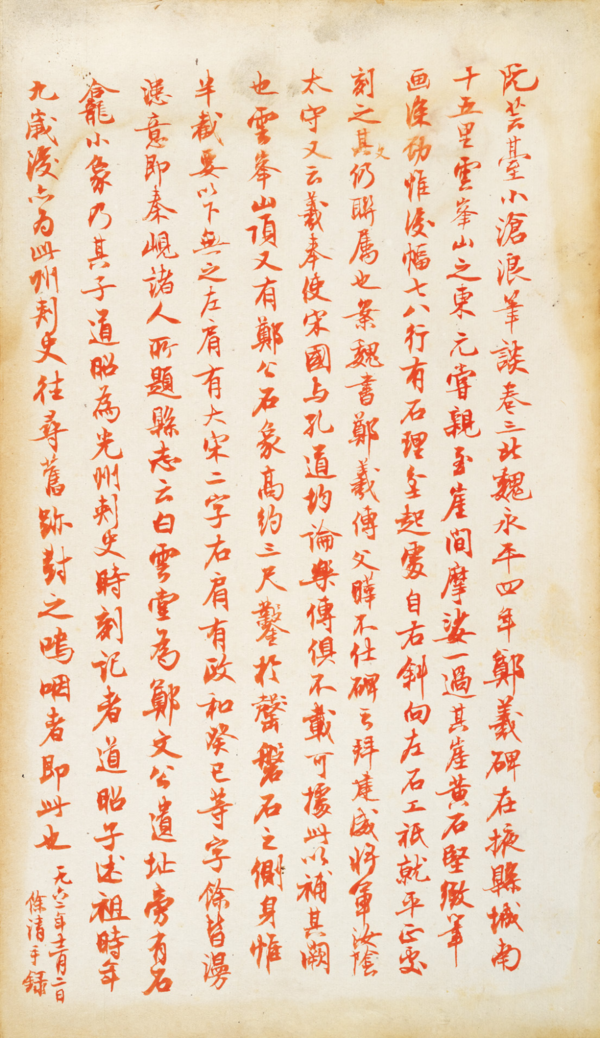 阮芸臺小滄浪筆談卷三北魏永平四年鄭羲碑在掖縣城南
十五里雲峯山之東元嘗親至崖間摩挲一過其崖黃石堅緻筆
画深勁惟後幅七八行有石理坌起處自右斜向左石工祇就平正處
刻之其文仍聯属也案魏書鄭羲傳父曄不仕碑云拜建威將軍汝陰
太守又云羲奉使宋國与孔道均論樂傳俱不載可據此以補其闕
也雲峯山頂又有鄭公石象高約三尺鑿於罄磐石之側身惟
半截要以下無之左肩有大宋二字右肩有政和癸巳等字餘皆漫
漶意即秦峴諸人所題縣志云白雲堂為鄭文公遺址旁有石
龕小象乃其子道昭為光州刺史時刻記者道昭子述祖時年
九歲後亦為此州刺史往尋舊跡對之嗚咽者即此也
一九六二年十二月二日
條清手録